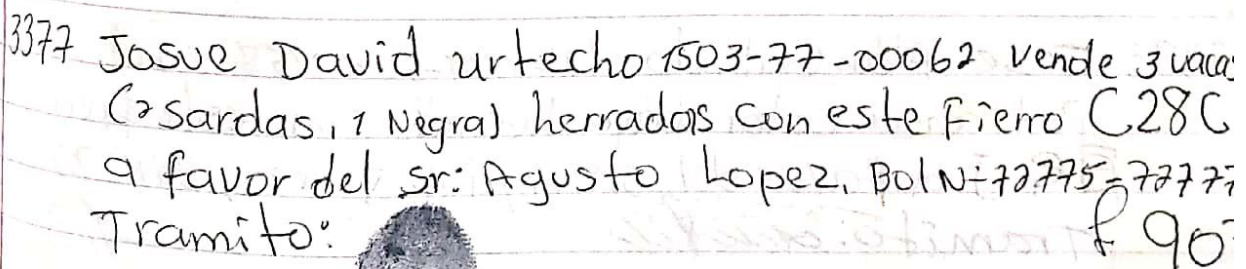 3377 Josue David urtecho 1503-77-00062 vende 3 vacas
(2 Sardas, 1 Negra) herrados con este Fierro C28C
a favor del sr: Agusto Lopez. Bol N:
Tramito: £ 90